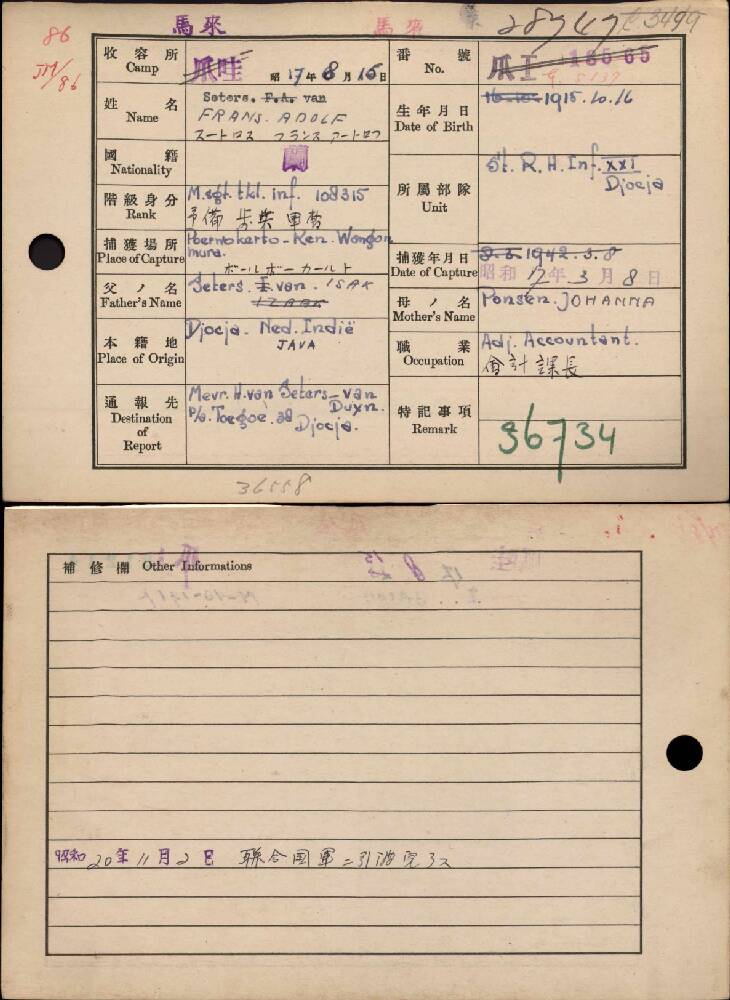 馬來
馬來
86
JM/86
C.3499
收容所
Camp
爪哇
昭17年8月15日
番號
No.
爪I 18565
姓名
Name
Seters. F.A. van
FRANS. ADOLF
生年月日
Date of Birth
1915.10.16
國籍
Nationality
蘭
階級身分
Rank
M.sgt. tkl. inf. 108315
予備 歩兵 軍曹
所屬部隊
Unit
St. R. H. Inf. XXI
Djocja
捕獲場所
Place of Capture
Poerwokerto - Ken. Wangon
mura.
捕獲年月日
Date of Capture
1942.3.8
昭和17年3月8日
父ノ名
Father's Name
Seters. I. van. ISAK
IZAAK
母ノ名
Mother's Name
Ponsen. JOHANNA
本籍地
Place of Origin
Djocja. Ned. Indië
JAVA
職業
Occupation
Adj. Accountant.
會計課長
通報先
Destination
of
Report
Mevr. H. van Seters - van
Duyn.
P/a. Toegoe. 28
Djocja.
特記事項
Remark
36734
36558
補修欄 Other Informations
昭和20年11月2日 聯合国軍ニ引渡完了ス